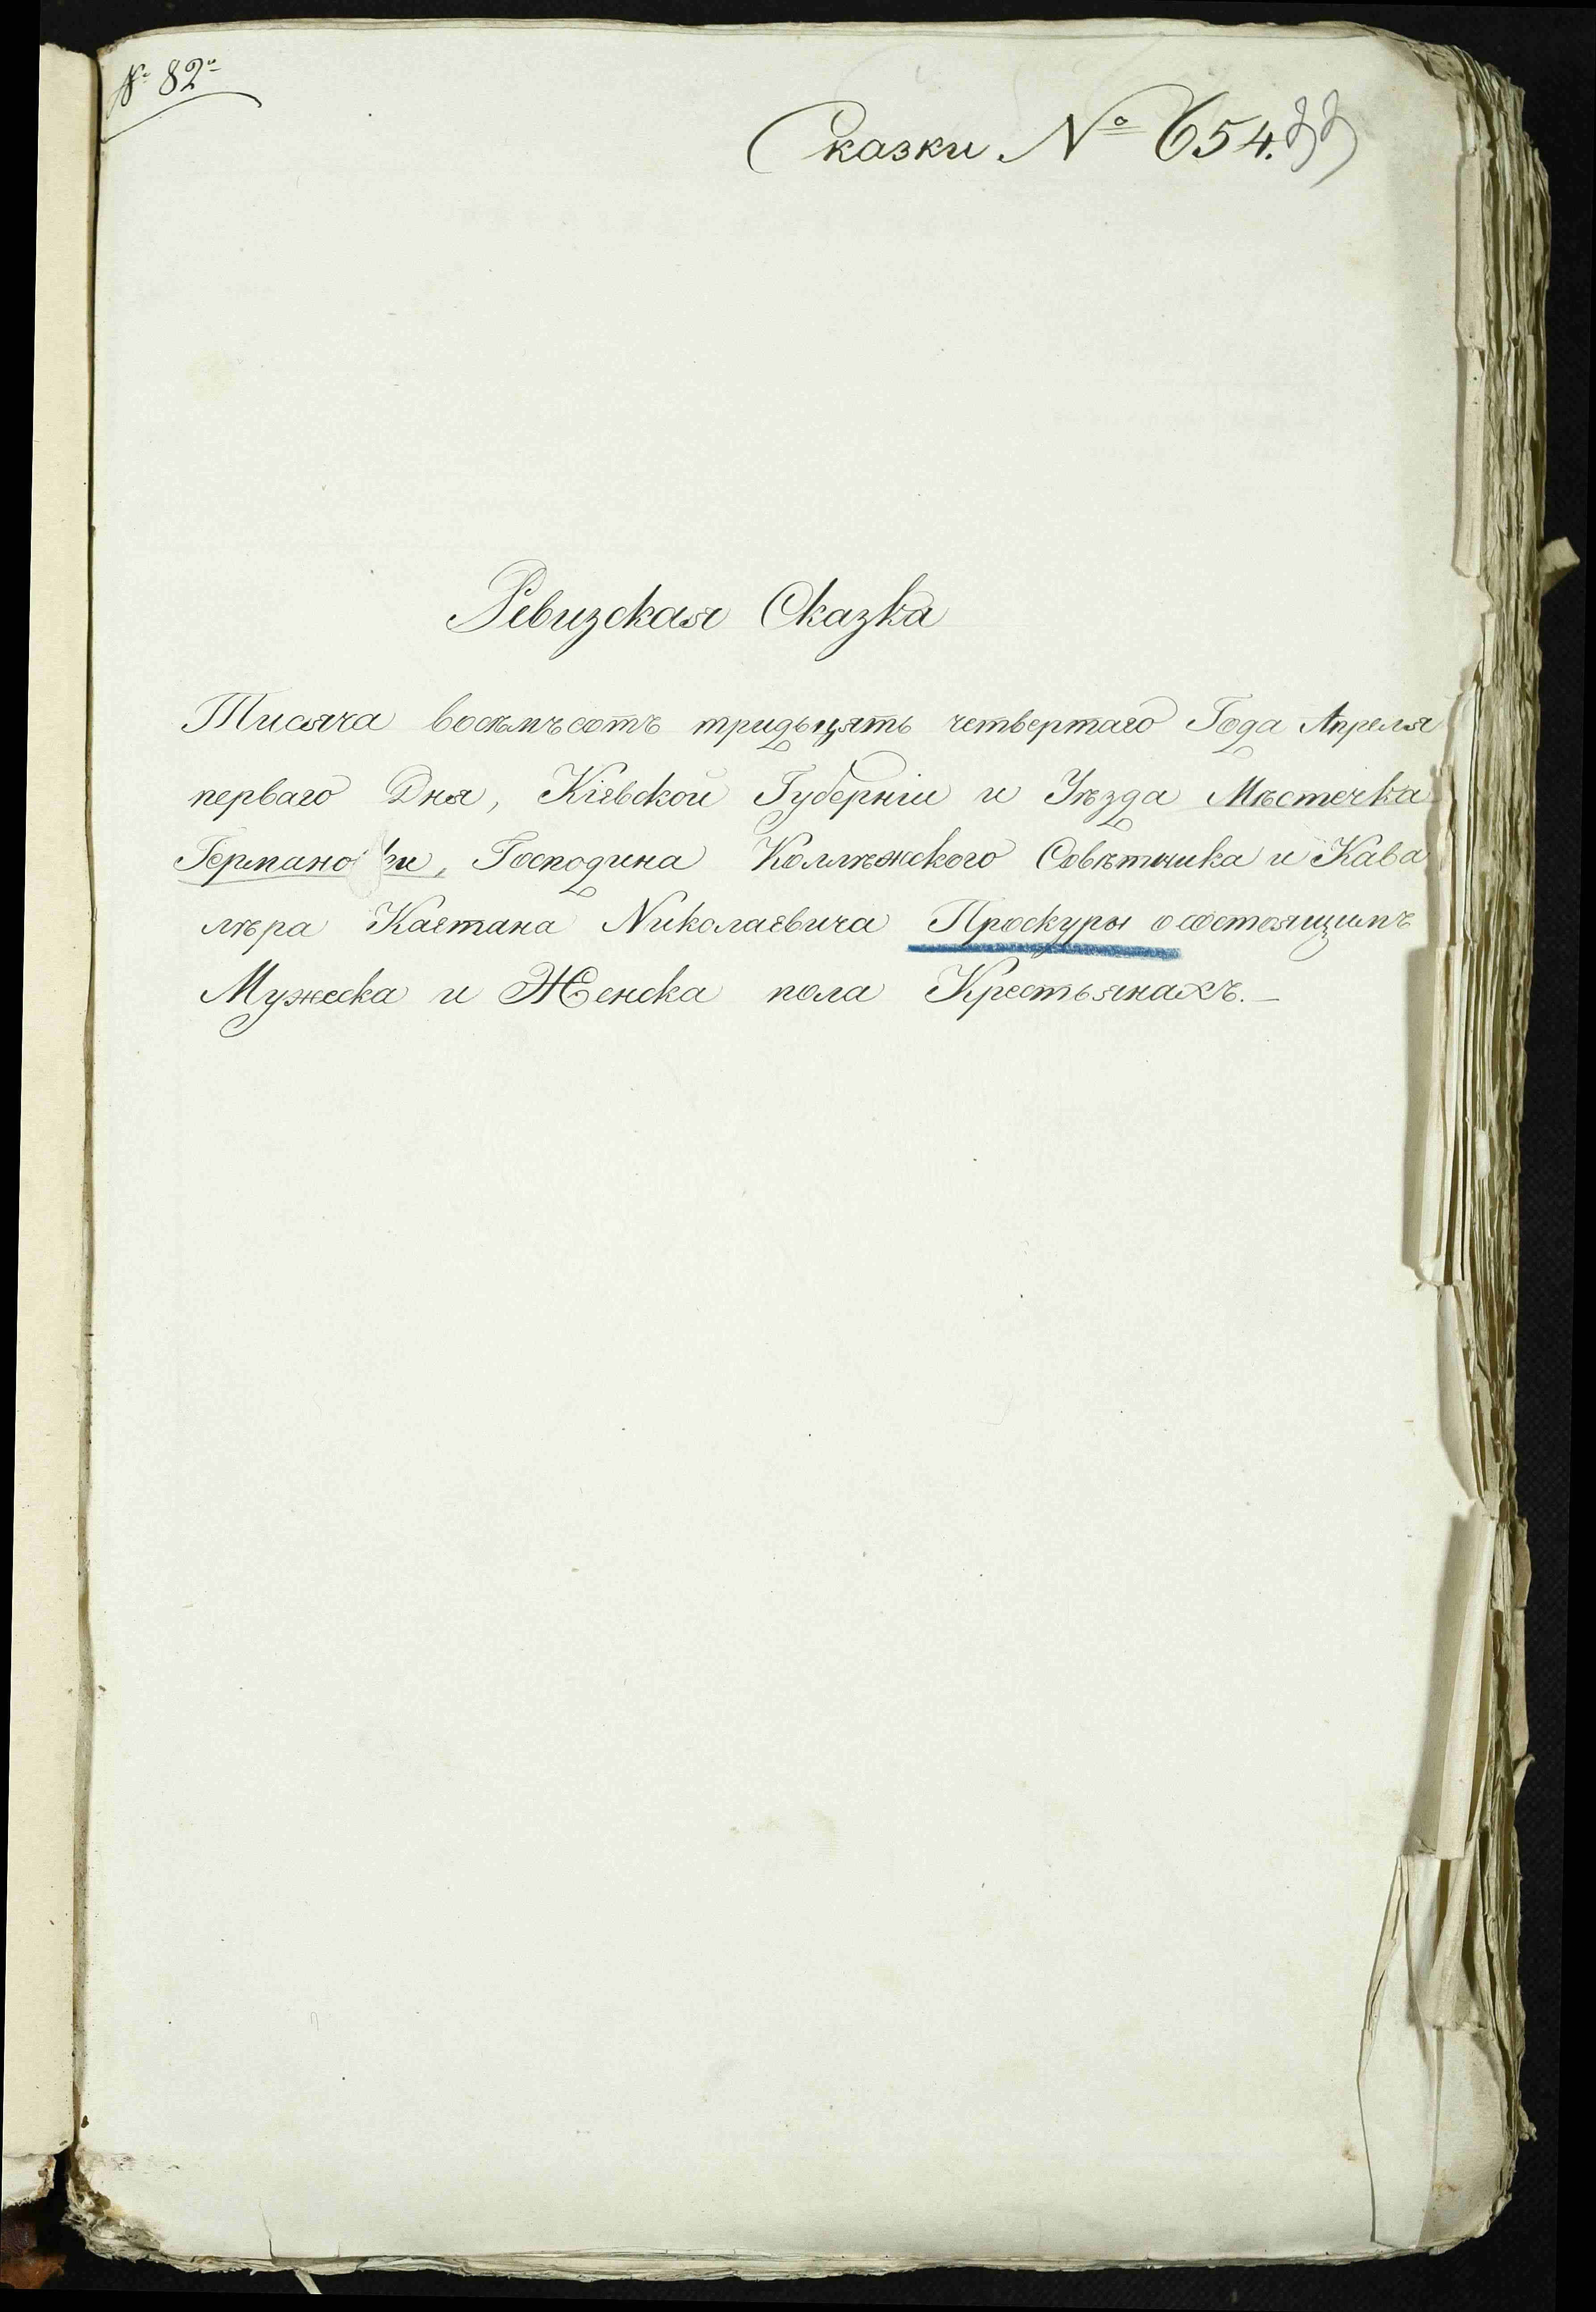 № 82
Сказки № 654.
Ревизская Сказка
Тисяча восемъсотъ тридьцять четвертаго Года Апреля
перваго Дня, Кіевской Губерніи и Уѣзда Мѣстечка
Господина Коллѣжского Совѣтника и Кава
лѣра Каетана Николаевича Проскуры о состоящимъ
Мужеска и Женска пола Крестьянахъ.—